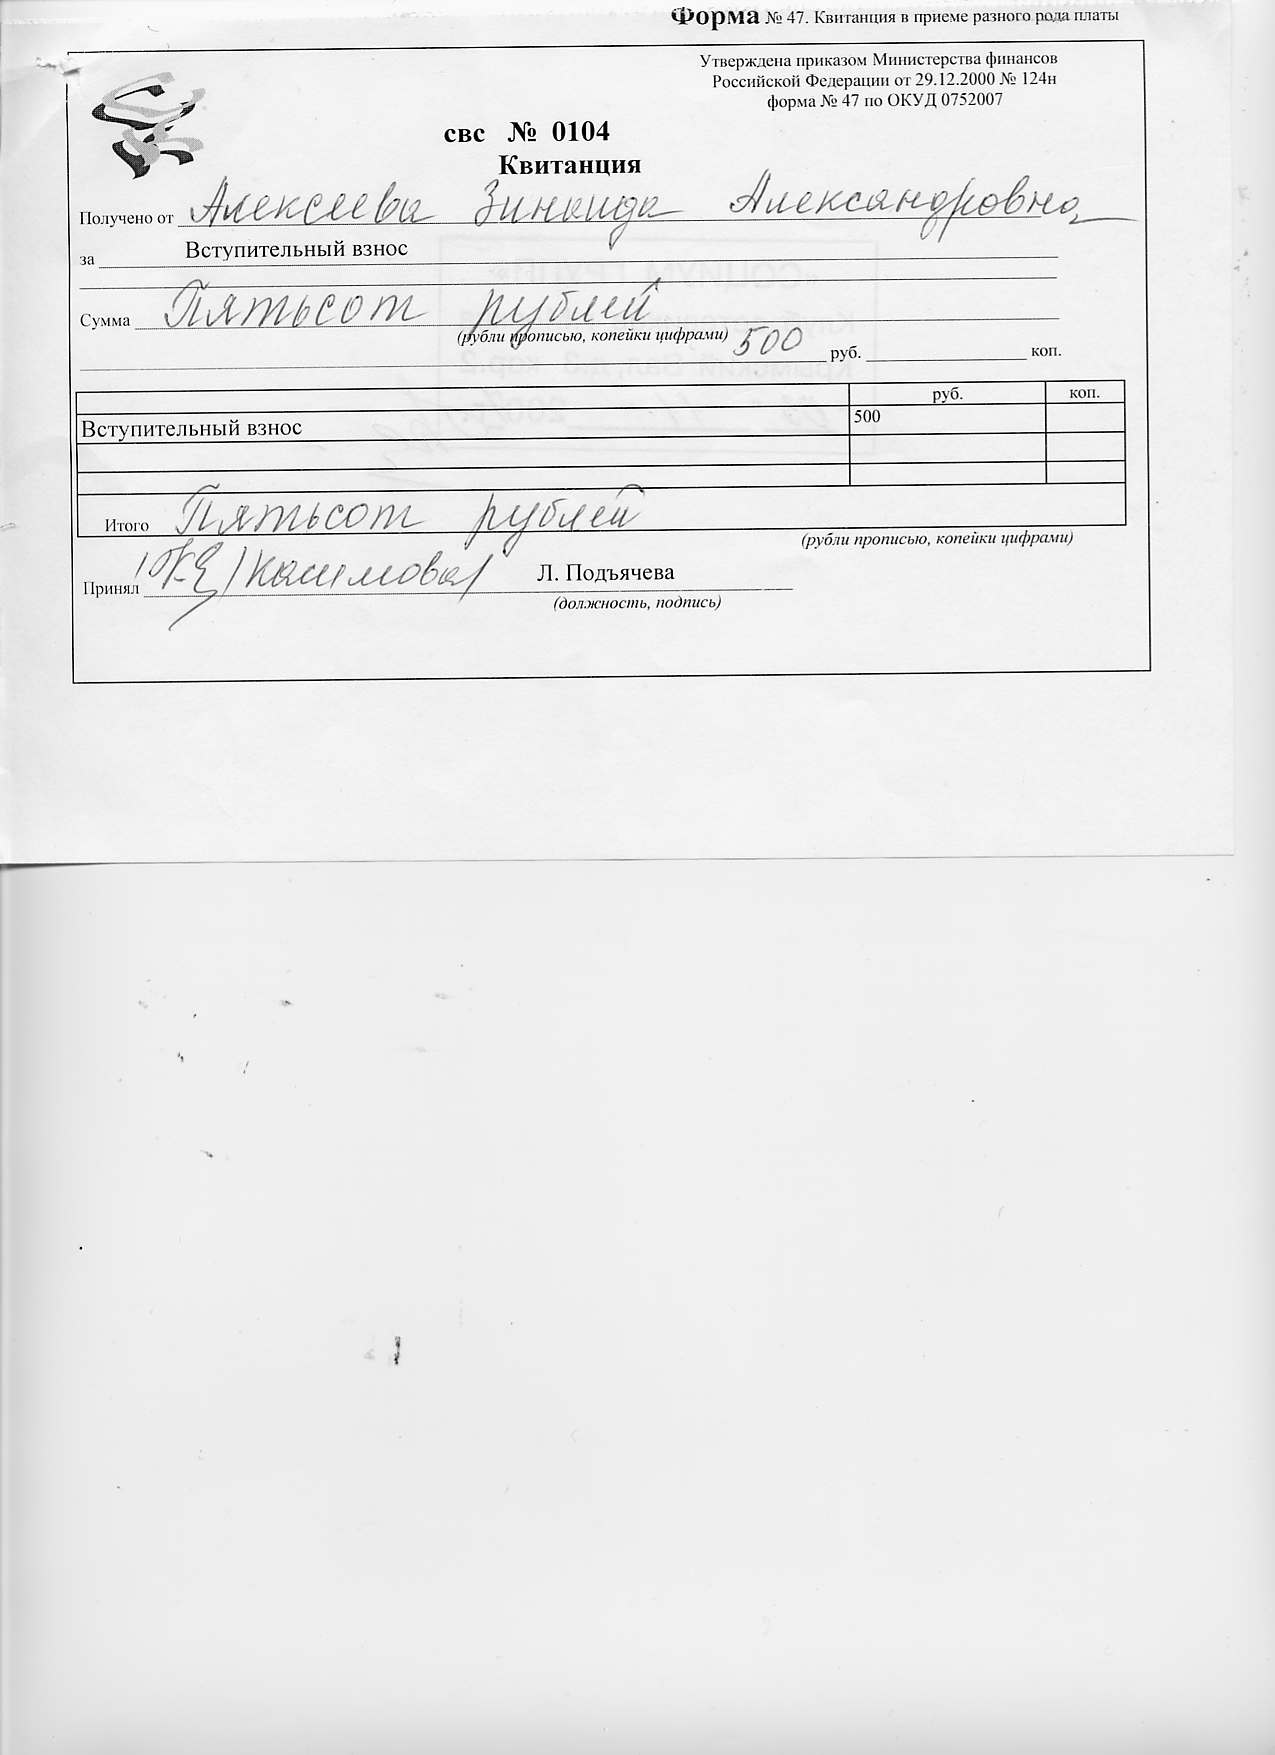 Форма № 47. Квитанция в приеме разного рода платы
Утверждена приказом Министерства финансов
Российской Федерации от 29.12.2000 № 124н
форма № 47 по ОКУД 0752007
свс № 0104
Квитанция
Получено от Алексеева Зинаида Александровна
за Вступительный взнос
Сумма Пятьсот рублей
(рубли прописью, копейки цифрами)
500 руб. коп.
руб. коп.
Вступительный взнос 500
Итого Пятьсот рублей
(рубли прописью, копейки цифрами)
Принял /Касимова/ Л. Подъячева
(должность, подпись)